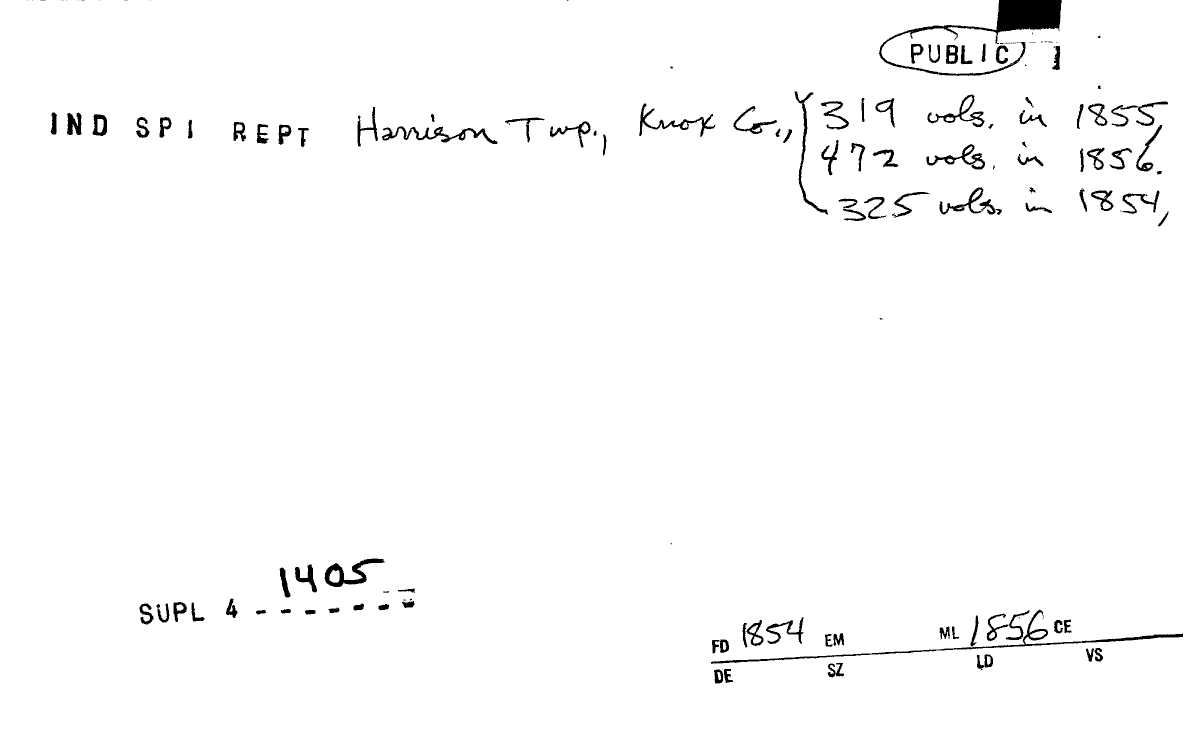 PUBLIC 1
IND SPI REPT Harrison Twp., Knox Co., 319 vols. in 1855,
472 vols. in 1856.
325 vols. in 1854,
1405
SUPL 4 - - - - - - -
FD 1854 EM ML 1856 CE
DE SZ LD VS